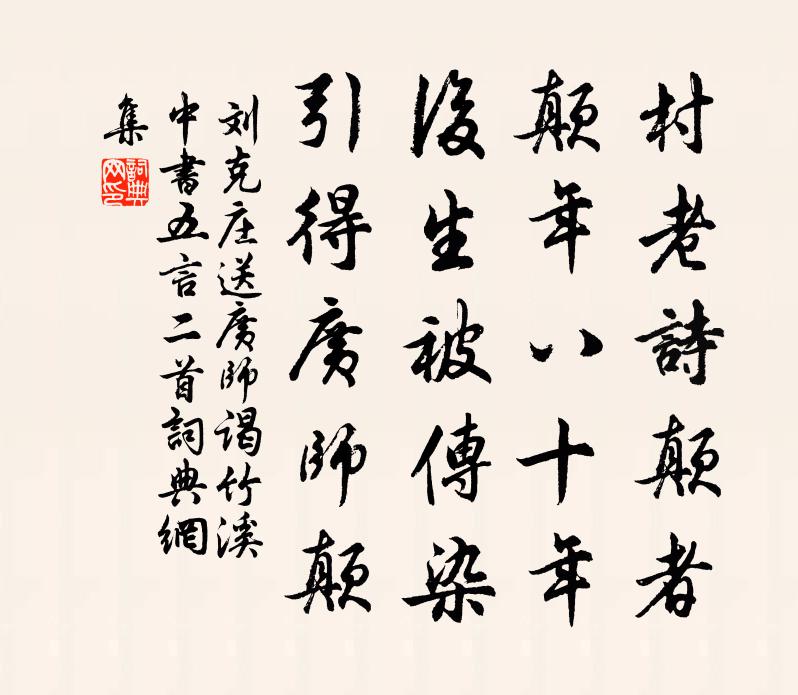 村老詩顛者
顛年八十年
後生被傳染
引得廣師顛
刘克庄送廣師谒竹溪
中書五言二首詞典網
集
詞典
网印